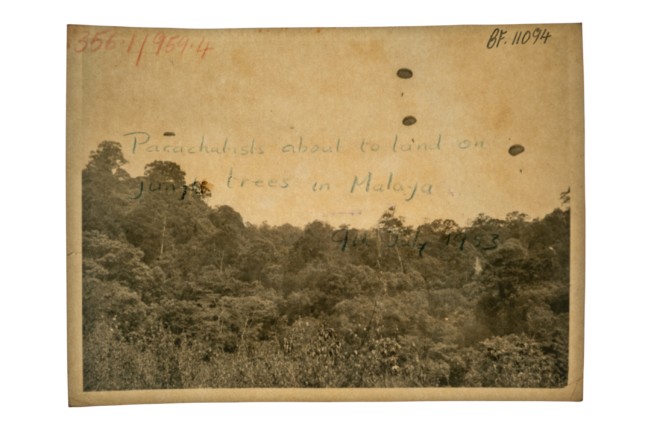 356.1/959.4
BF. 11094
Parachutists about to land on
jungle trees in Malaya.
July 1953